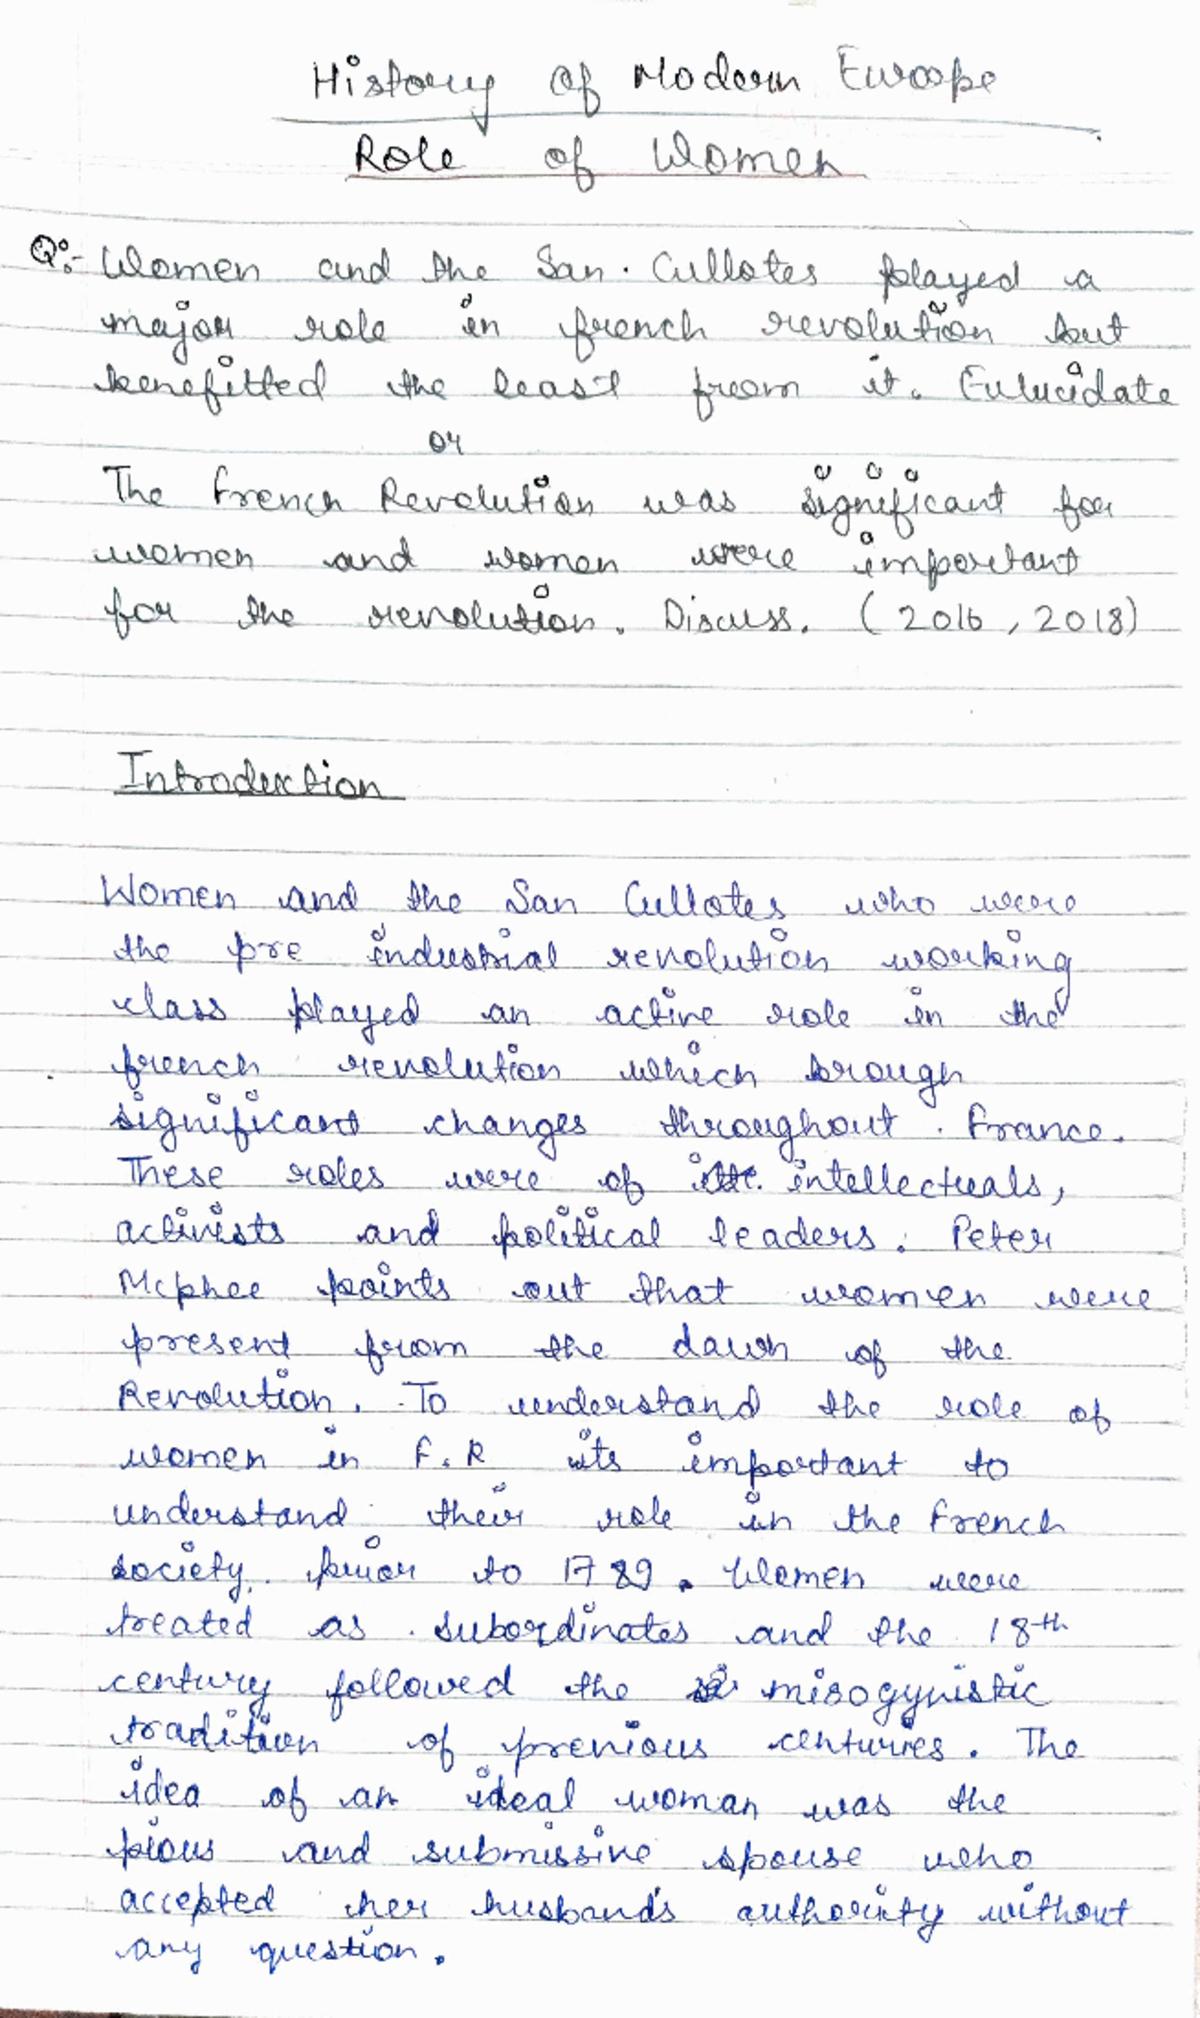 History of Modern Europe
Role of Women
Q:- Women and the San. Cullotes played a
major role in french revolution but
benefitted the least from it. Eulucidate
or
The French Revolution was significant for
women and women were important
for the revolution. Discuss. (2016, 2018)
Introduction
Women and the San Cullotes who were
the pre industrial revolution working
class played an active role in the
french revolution which brough
significant changes throughout. France.
These roles were of intellectuals,
activists and political leaders. Peter
Mcphee points out that women were
present from the dawn of the
Revolution. To understand the role of
women in F.R its important to
understand their role in the French
society. prior to 1789. Women were
treated as subordinates and the 18th
century followed the misogynistic
tradition of previous centuries. The
idea of an ideal woman was the
pious and submissive spouse who
accepted her husband's authority without
any question.